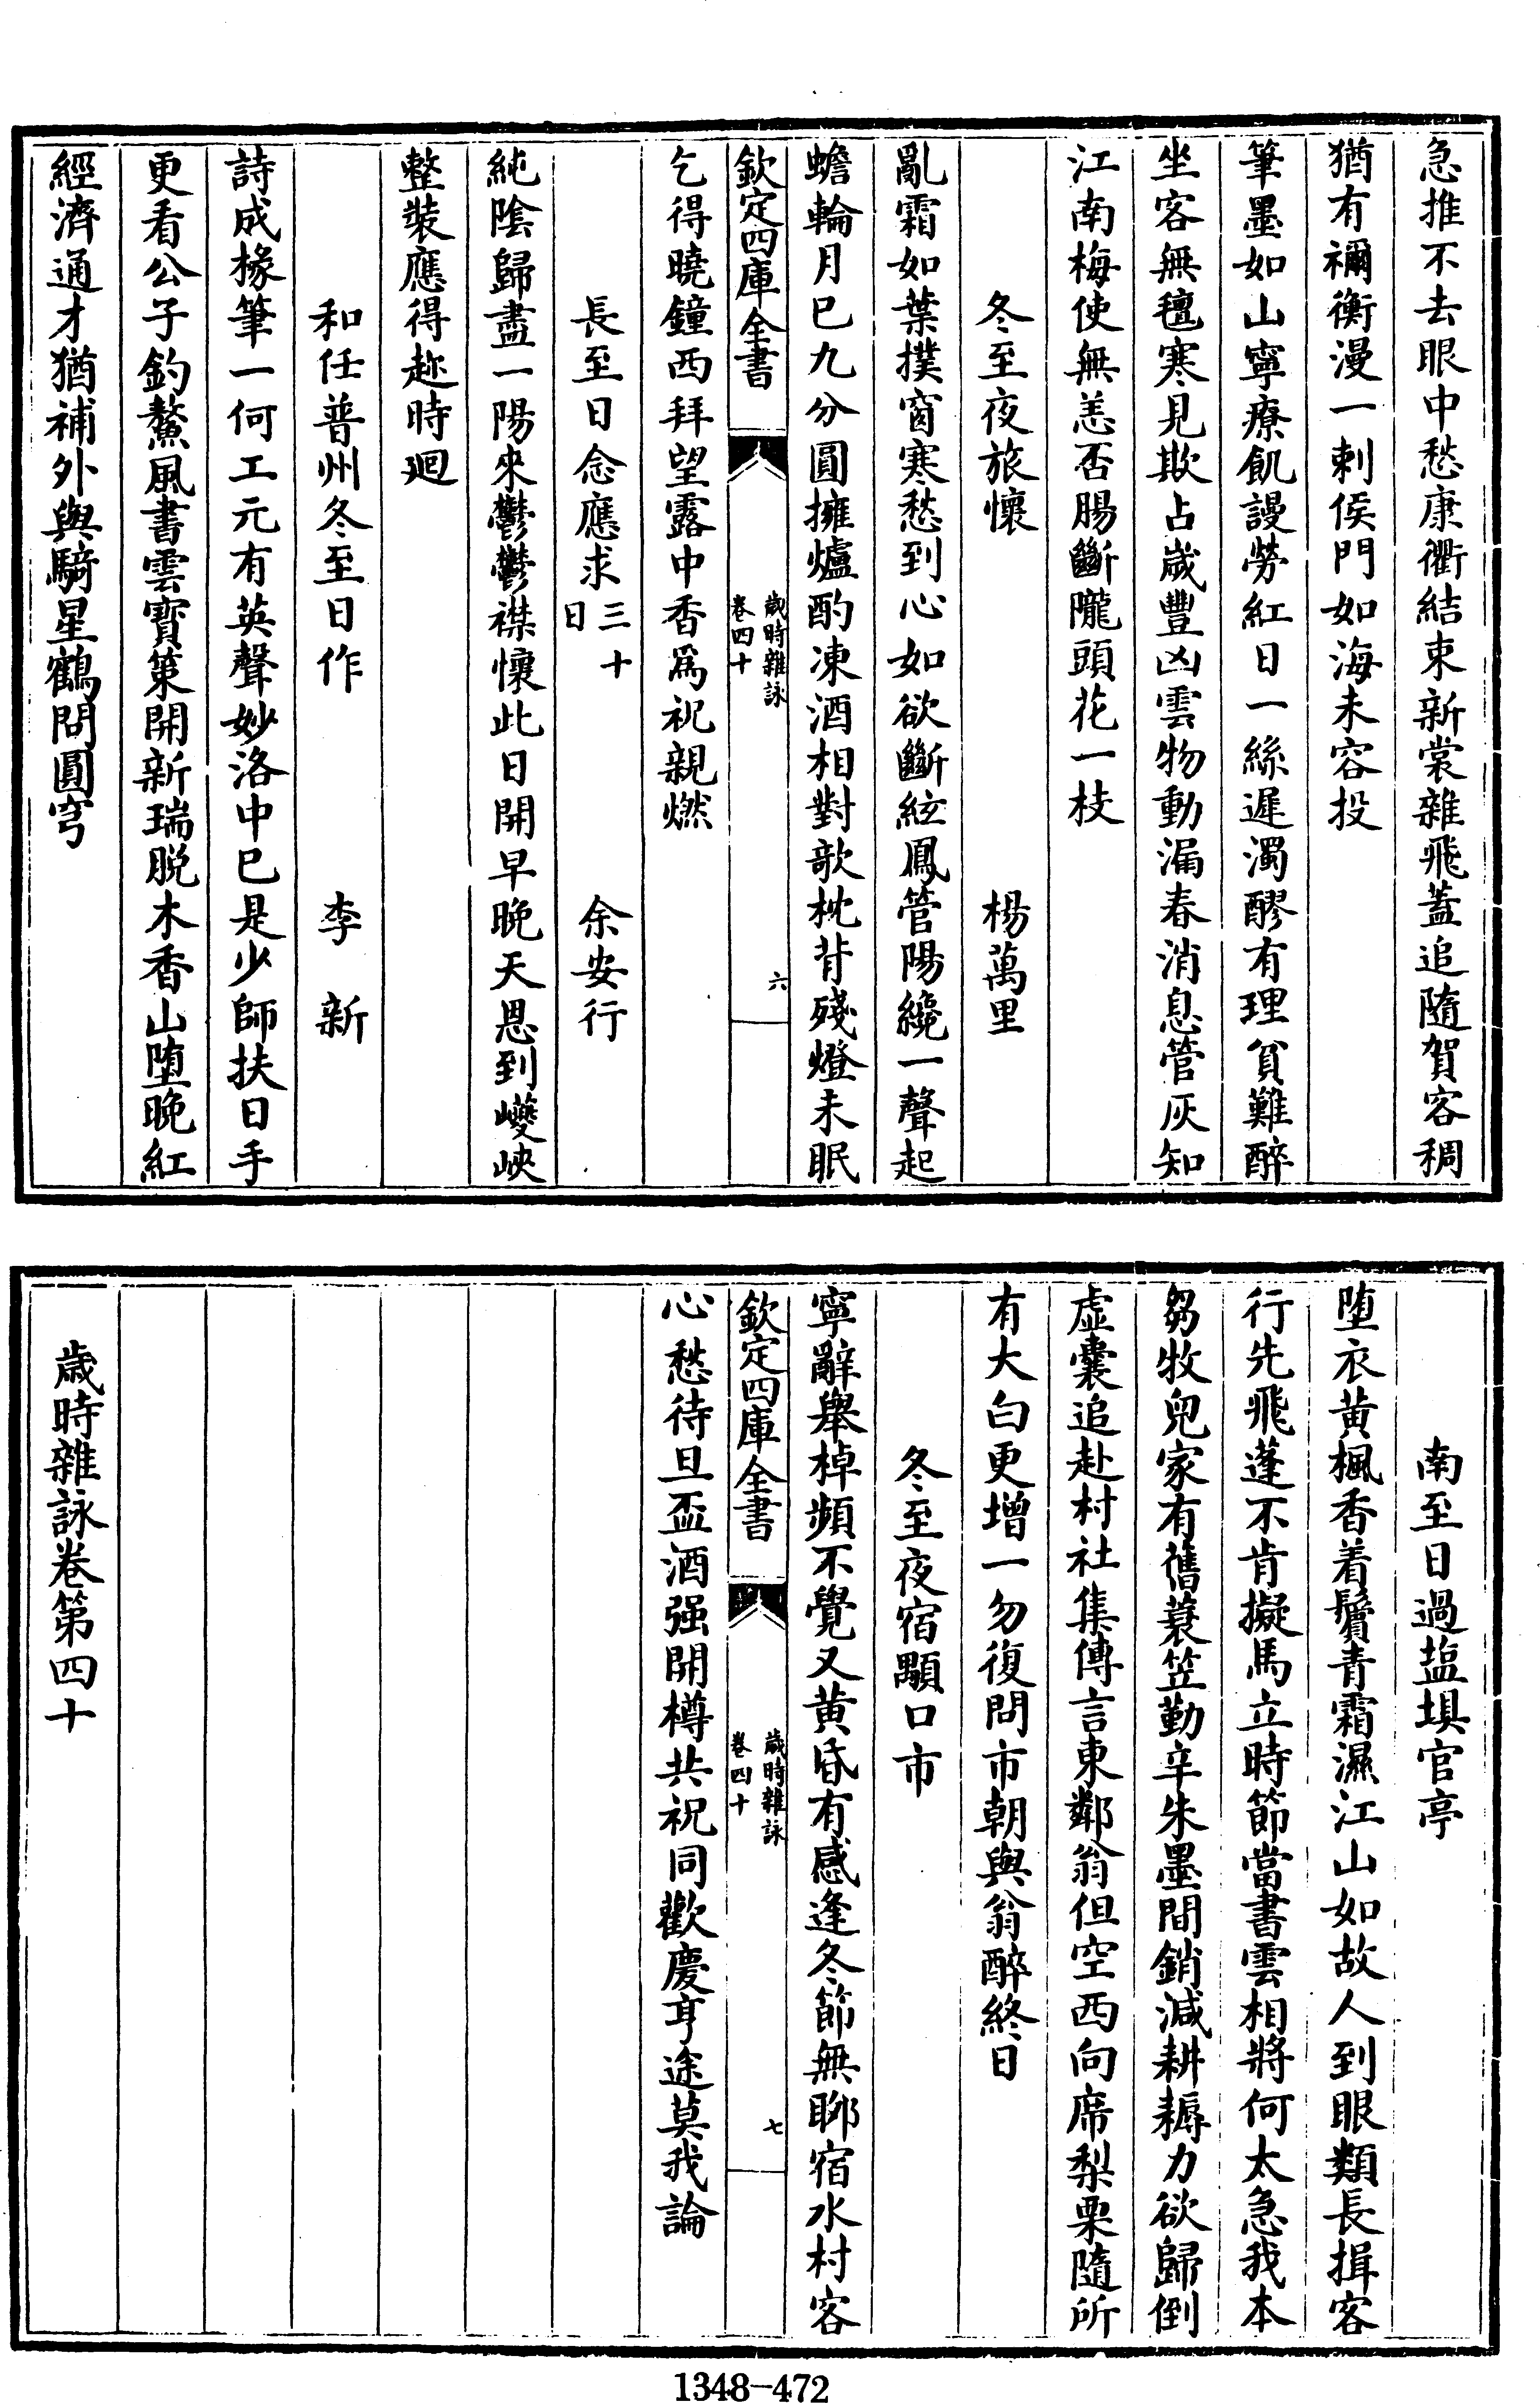 急推不去眼中愁康衢結束新裳雜飛蓋追隨賀客稠
猶有禰衡漫一刺侯門如海未容投
筆墨如山寧療飢謾勞紅日一絲遲濁醪有理貧難醉
坐客無氊寒見欺占歲豐凶雲物動漏春消息管灰知
江南梅使無恙否腸斷隴頭花一枝
冬至夜旅懷 楊萬里
亂霜如葉撲窗寒愁到心如欲斷絃鳳管陽纔一聲起
蟾輪月已九分圓擁爐酌凍酒相對欹枕背殘燈未眠
欽定四庫全書
歲時雜詠
卷四十
六
乞得曉鐘西拜望露中香爲祝親燃
長至日念應求三十日 余安行
純隂歸盡一陽來鬱鬱襟懷此日開早晩天恩到巙峽
整裝應得趂時廻
和任普州冬至日作 李新
詩成椽筆一何工元有英聲妙洛中已是少師扶日手
更看公子釣鰲風書雲寳策開新瑞脱木香山墮晩紅
經濟通才猶補外與騎星鶴問圓穹
南至日過塩埧官亭
墮衣黄楓香着鬢青霜濕江山如故人到眼類長揖客
行先飛蓬不肯擬馬立時節當書雲相將何太急我本
芻牧兒家有舊蓑笠勤辛朱墨間銷減耕耨力欲歸倒
虚囊追赴村社集傳言東鄰翁但空西向席梨栗隨所
有大白更增一勿復問市朝與翁醉終日
冬至夜宿顒口市
寧辭舉棹頻不覺又黄昏有感逢冬節無聊宿水村客
欽定四庫全書
歲時雜詠
卷四十
七
心愁待旦盃酒强開樽共祝同歡慶亨途莫我論
歲時雜詠卷第四十
1348-472